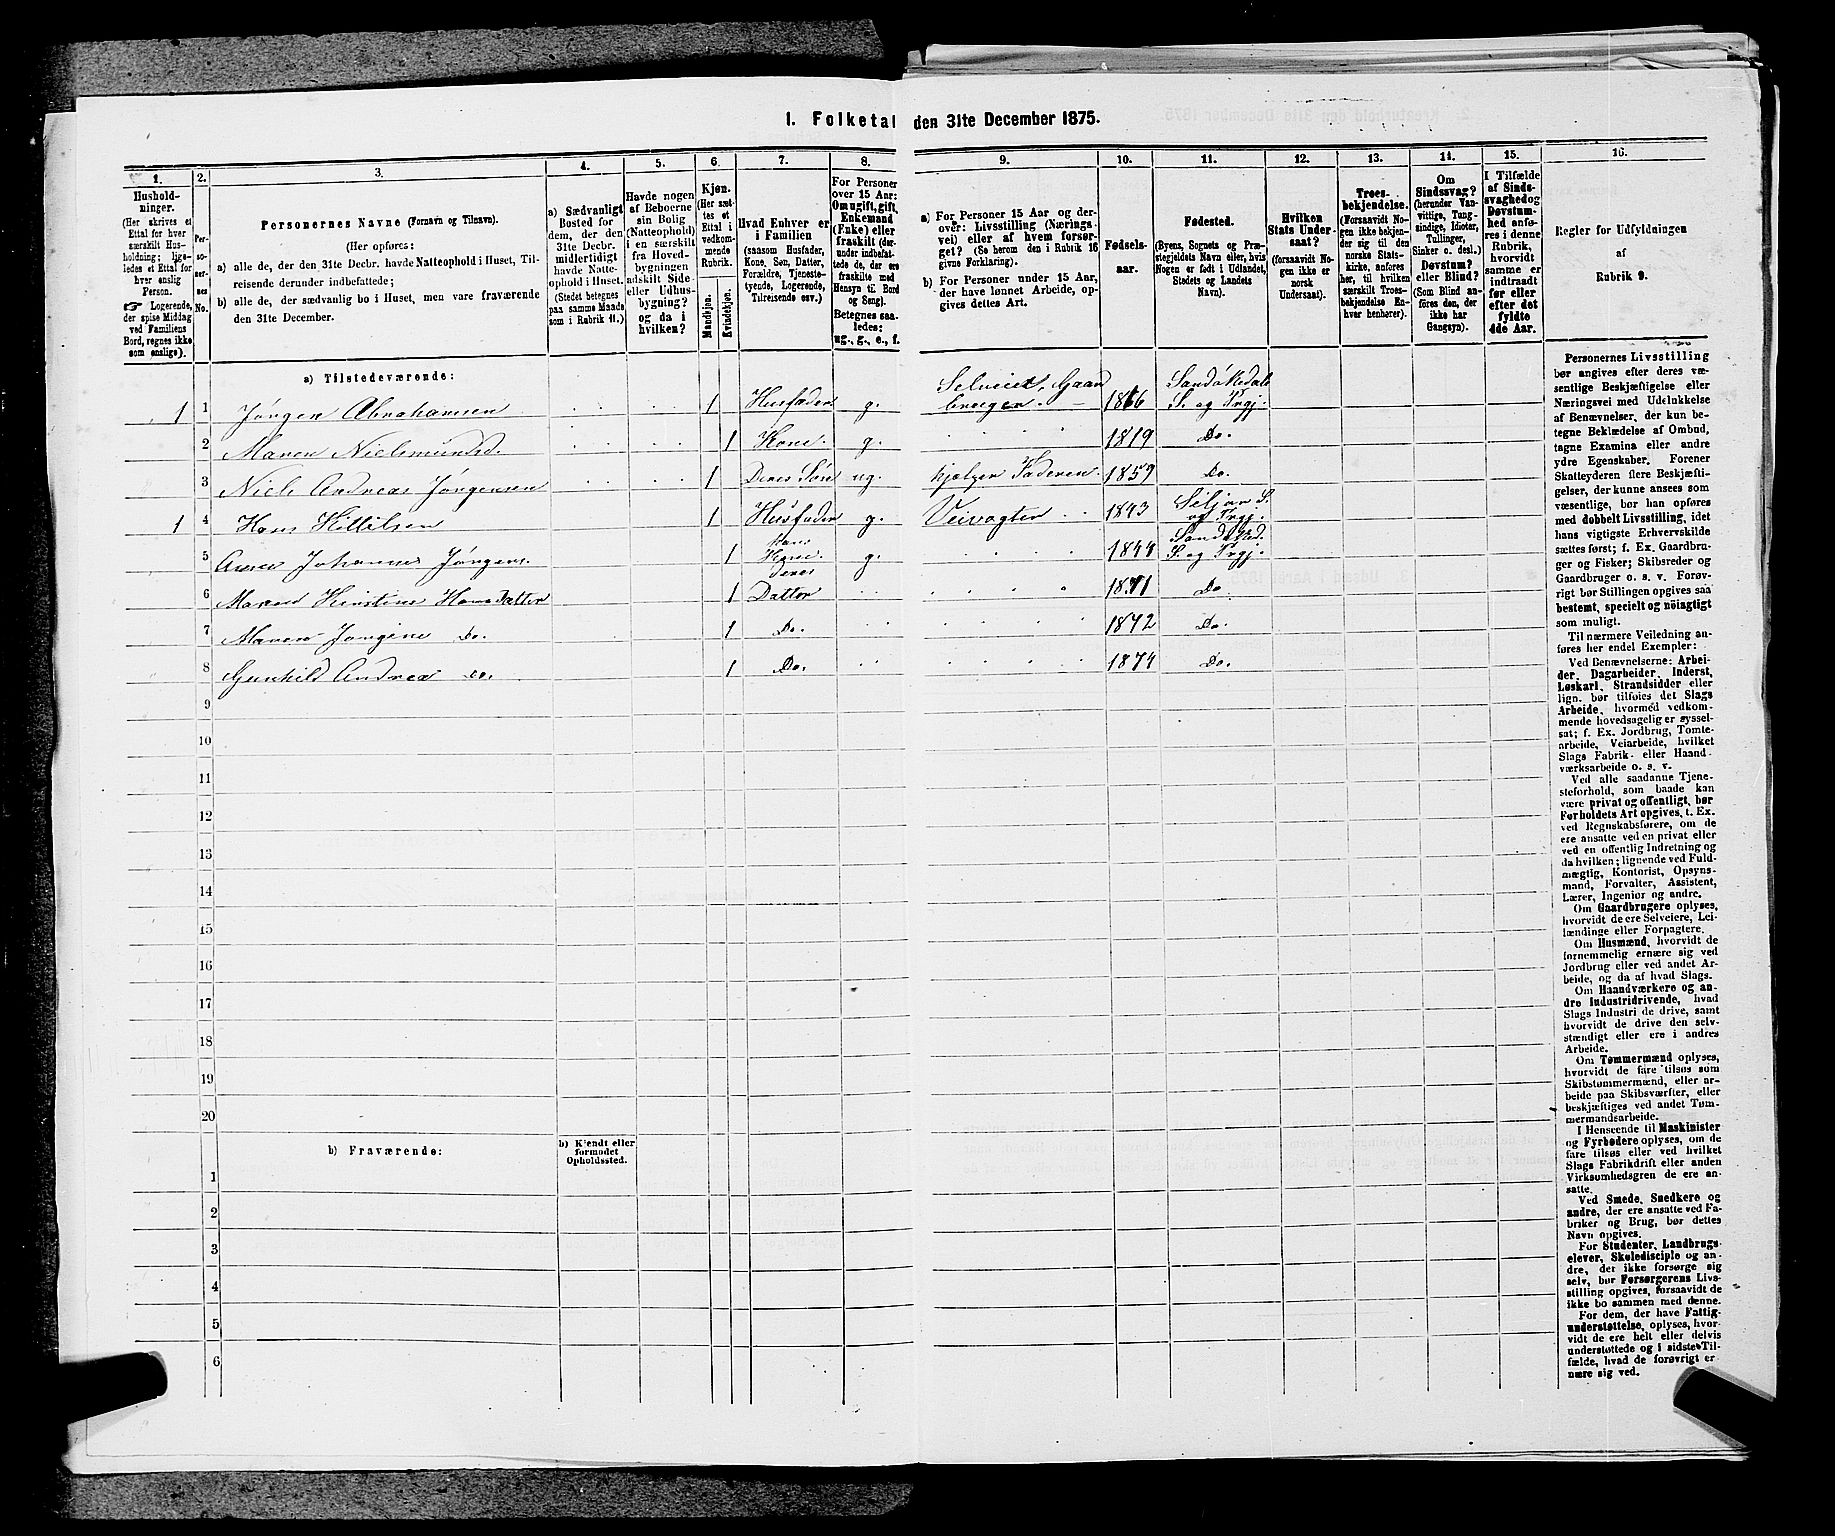 1. Folketal den 31te December 1875.
1. 2. 3. 4. 5. 6. 7. 8. 9. 10. 11. 12. 13. 14. 15. 16.
Husholdninger.
(Her skrives et
Ettal for hver
særskilt Husholdning; ligeledes
et Ettal for
hver enslig
Person.
☞ Logerende,
der spise Middag
ved Familiens
Bord, regnes ikke
som enslige).
Personernes No.
Personernes Navne (Fornavn og Tilnavn).
(Her opføres:
a) alle de, der den 31te Decbr. havde Natteophold i Huset, Tilreisende
derunder indbefattede;
b) alle de, der sædvanlig bo i Huset, men vare fraværende
den 31te December.
a) Sædvanligt
Bosted for
dem, der den
31te Decbr.
midlertidigt
havde Natteophold
i Huset.
(Stedet betegnes
paa samme Maade
som i Rubrik 11.)
Havde nogen
af Beboerne
sin Bolig
(Natteophold)
i en særskilt
fra Hovedbygningen
adskilt Side-
eller Udhusbygning?
og da i
hvilken?
Kjøn.
(Her sættes
et
Ettal i
vedkommende
Rubrik.
Mandkjøn.
Kvindekjøn.
Hvad Enhver er
i Familien
(saasom Husfader,
Kone, Søn, Datter,
Forældre, Tjenestetyende,
Logerende,
Tilreisende osv.)
For Personer
over 15 Aar:
Om ugift, gift,
Enkemand
(Enke) eller
fraskilt (derunder
indbefattede
de, der ere
fraskilte med
Hensyn til Bord
og Seng).
Betegnes saaledes:
ug., g., e., f.
a) For Personer 15 Aar og derover:
Livsstilling (Næringsvei)
eller af hvem forsørget?
(Se herom den i Rubrik 16
givne Forklaring).
b) For Personer under 15 Aar,
der have lønnet Arbeide, opgives
dettes Art.
Fødselsaar.
Fødested.
(Byens, Sognets og Præstegjeldets
Navn eller, hvis
Nogen er født i Udlandet,
Stedets og Landets
Navn).
Hvilken
Stats Undersaat?
(forsaavidt Nogen
ikke er
norsk
Undersaat).
Troesbekjendelse.
(Forsaavidt Nogen
ikke bekjender
sig til den
norske Statskirke,
anføres
her, til hvilken
særskilt Troesbekjendelse
Enhver
henhører).
Om
Sindssvag?
(herunder Vanvittige,
Tungsindige,
Idioter,
Tullinger,
Sinker o. desl.)
Døvstum?
eller Blind?
(Som Blind anføres
den, der
ikke har
Gangsyn).
I Tilfælde
af Sindssvaghed
og
Døvstumhed
anføres
i denne
Rubrik,
hvorvidt
samme er
indtraadt
før eller
efter det
fyldte
4de Aar.
Regler for Udfyldningen
af
Rubrik 9.
a) Tilstedeværende:
1 1 Jørgen Abrahamsen 1 Husfader g. Selveier, Gaardbruger 1816 Sandøkedals S. og Prgj.
2 Maren Nielsmundsd. 1 Kone. g. 1819 Do.
3 Niels Andreas Jørgensen 1 Deres Søn ug. hjælper Faderen. 1859 Do.
1 4 Hans Kittilsen 1 Husfader g. Veivogter 1843 Seljor S. og Prgj.
5 Anne Johanne Jørgens. 1 Hans Kone. g. 1844 Sandøked. S. og Prgj.
6 Maren Kirstine Hans Datter 1 Deres Datter 1871 Do
7 Maren Jørgine Do. 1 Do. 1872 Do.
8 Gunhild Andrea Do. 1 Do. 1874 Do.
9
10
11
12
13
14
15
16
17
18
19
20
b) Fraværende:
b) Kjendt eller
formodet
Opholdssted.
1
2
3
4
5
6
Personernes Livsstilling
bør angives efter deres væsentlige
Beskjæftigelse eller
Næringsvei med Udelukkelse
af Benævnelser, der kun betegne
Beklædelse af Ombud,
tagne Examina eller andre
ydre Egenskaber. Forener
Skatteyderen flere Beskjæftigelser,
der kunne ansees som
væsentlige, bør han opføres
med dobbelt Livsstilling, idet
hans vigtigste Erhvervskilde
sættes først; f. Ex. Gaardbruger
og Fisker; Skibsreder og
Gaardbruger o. s. v. Forøvrigt
bør Stillingen opgives saa
bestemt, specielt og nöiagtigt
som muligt.
Til nærmere Veiledning anføres
her endel Exempler:
Ved Benævnelserne: Arbeider,
Dagarbeider, Inderst,
Løskarl, Strandsidder eller
lign. bør tilføies det Slags
Arbeide, hvormed vedkommende
hovedsagelig er sysselsat;
f. Ex. Jordbrug, Tomtearbeide,
Veiarbeide, hvilket
Slags Fabrik- eller Haandværksarbeide
o. s. v.
Ved alle saadanne Tjenesteforhold,
som baade kan
være privat og offentligt, bør
Forholdets Art opgives, t. Ex.
ved Regnskabsførere, om de
ere ansatte ved en privat eller
ved en offentlig Indretning og
da hvilken; lignende ved Fuldmægtig,
Kontorist, Opsynsmand,
Forvalter, Assistent,
Lærer, Ingeniør og andre.
Om Gaardbrugere oplyses,
hvorvidt de ere Selveiere, Leilændinge
eller Forpagtere.
Om Husmænd, hvorvidt de
fornemmelig ernære sig ved
Jordbrug eller ved andet Arbeide,
og da af hvad Slags.
Om Haandværkere og andre
Industridrivende, hvad
Slags Industri de drive, samt
hvorvidt de drive den selvstændigt
eller ere i andres
Arbeide.
Om Tømmermænd oplyses,
hvorvidt de fare tilsøs som
Skibstømmermænd, eller arbeide
paa Skibsværfter, eller
beskjæftiges ved andet Tømmermandsarbeide.
I Henseende til Maskinister
og Fyrbødere oplyses, om de
fare tilsøs eller ved hvilket
Slags Fabrikdrift eller anden
Virksomhedsgren de ere ansatte.
Ved Smede, Snedkere og
andre, der ere ansatte ved Fabriker
og Brug, bør dettes
Navn opgives.
For Studenter, Landbrugselever,
Skoledisciple og andre,
der ikke forsørge sig
selv, bør Forsørgerens Livsstilling
opgives, forsaavidt de
ikke bo sammen med denne.
For dem, der have Fattigunderstøttelse,
oplyses, hvorvidt
de ere helt eller delvis
understøttede og i sidste Tilfælde,
hvad de forøvrigt ernære
sig ved.